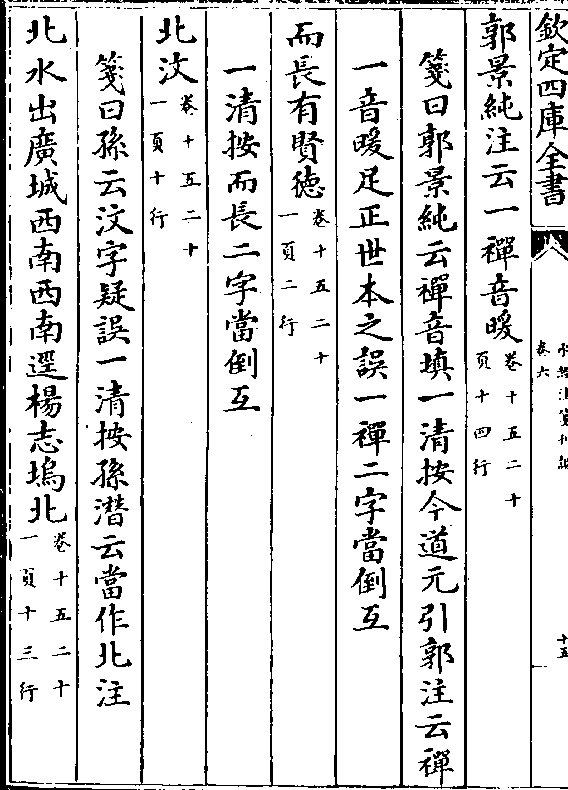 欽定四庫全書
水經注箋刊誤
卷六
十五
郭景純注云一禪音暖卷十五二十頁十四行
箋曰郭景純云禪音填一清按今道元引郭注云禪
一音暖足正世本之誤一禪二字當倒互
而長有賢德卷十五二十一頁二行
一清按而長二字當倒互
北汶卷十五二十一頁十行
箋曰孫云汶字疑誤一清按孫潛云當作北注
北水出廣城西南西南逕楊志塢北卷十五二十一頁十三行